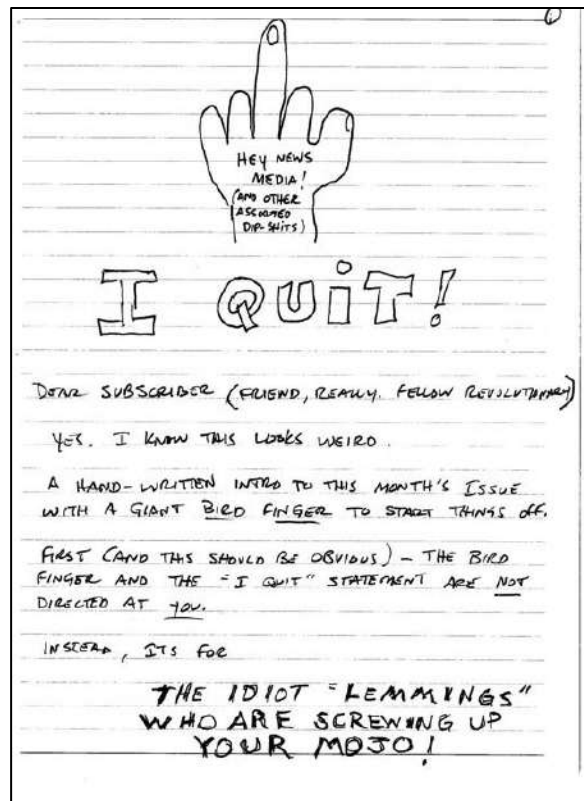 HEY NEWS
MEDIA!
(AND OTHER
ASSORTED
DIP-SHITS)
I QUIT!
DEAR SUBSCRIBER (FRIEND, REALLY. FELLOW REVOLUTIONARY)
YES. I KNOW THIS LOOKS WEIRD.
A HAND-WRITTEN INTRO TO THIS MONTH'S ISSUE
WITH A GIANT BIRD FINGER TO START THINGS OFF.
FIRST (AND THIS SHOULD BE OBVIOUS) - THE BIRD
FINGER AND THE "I QUIT" STATEMENT ARE NOT
DIRECTED AT YOU.
INSTEAD, ITS FOR
THE IDIOT "LEMMINGS"
WHO ARE SCREWING UP
YOUR MOJO!